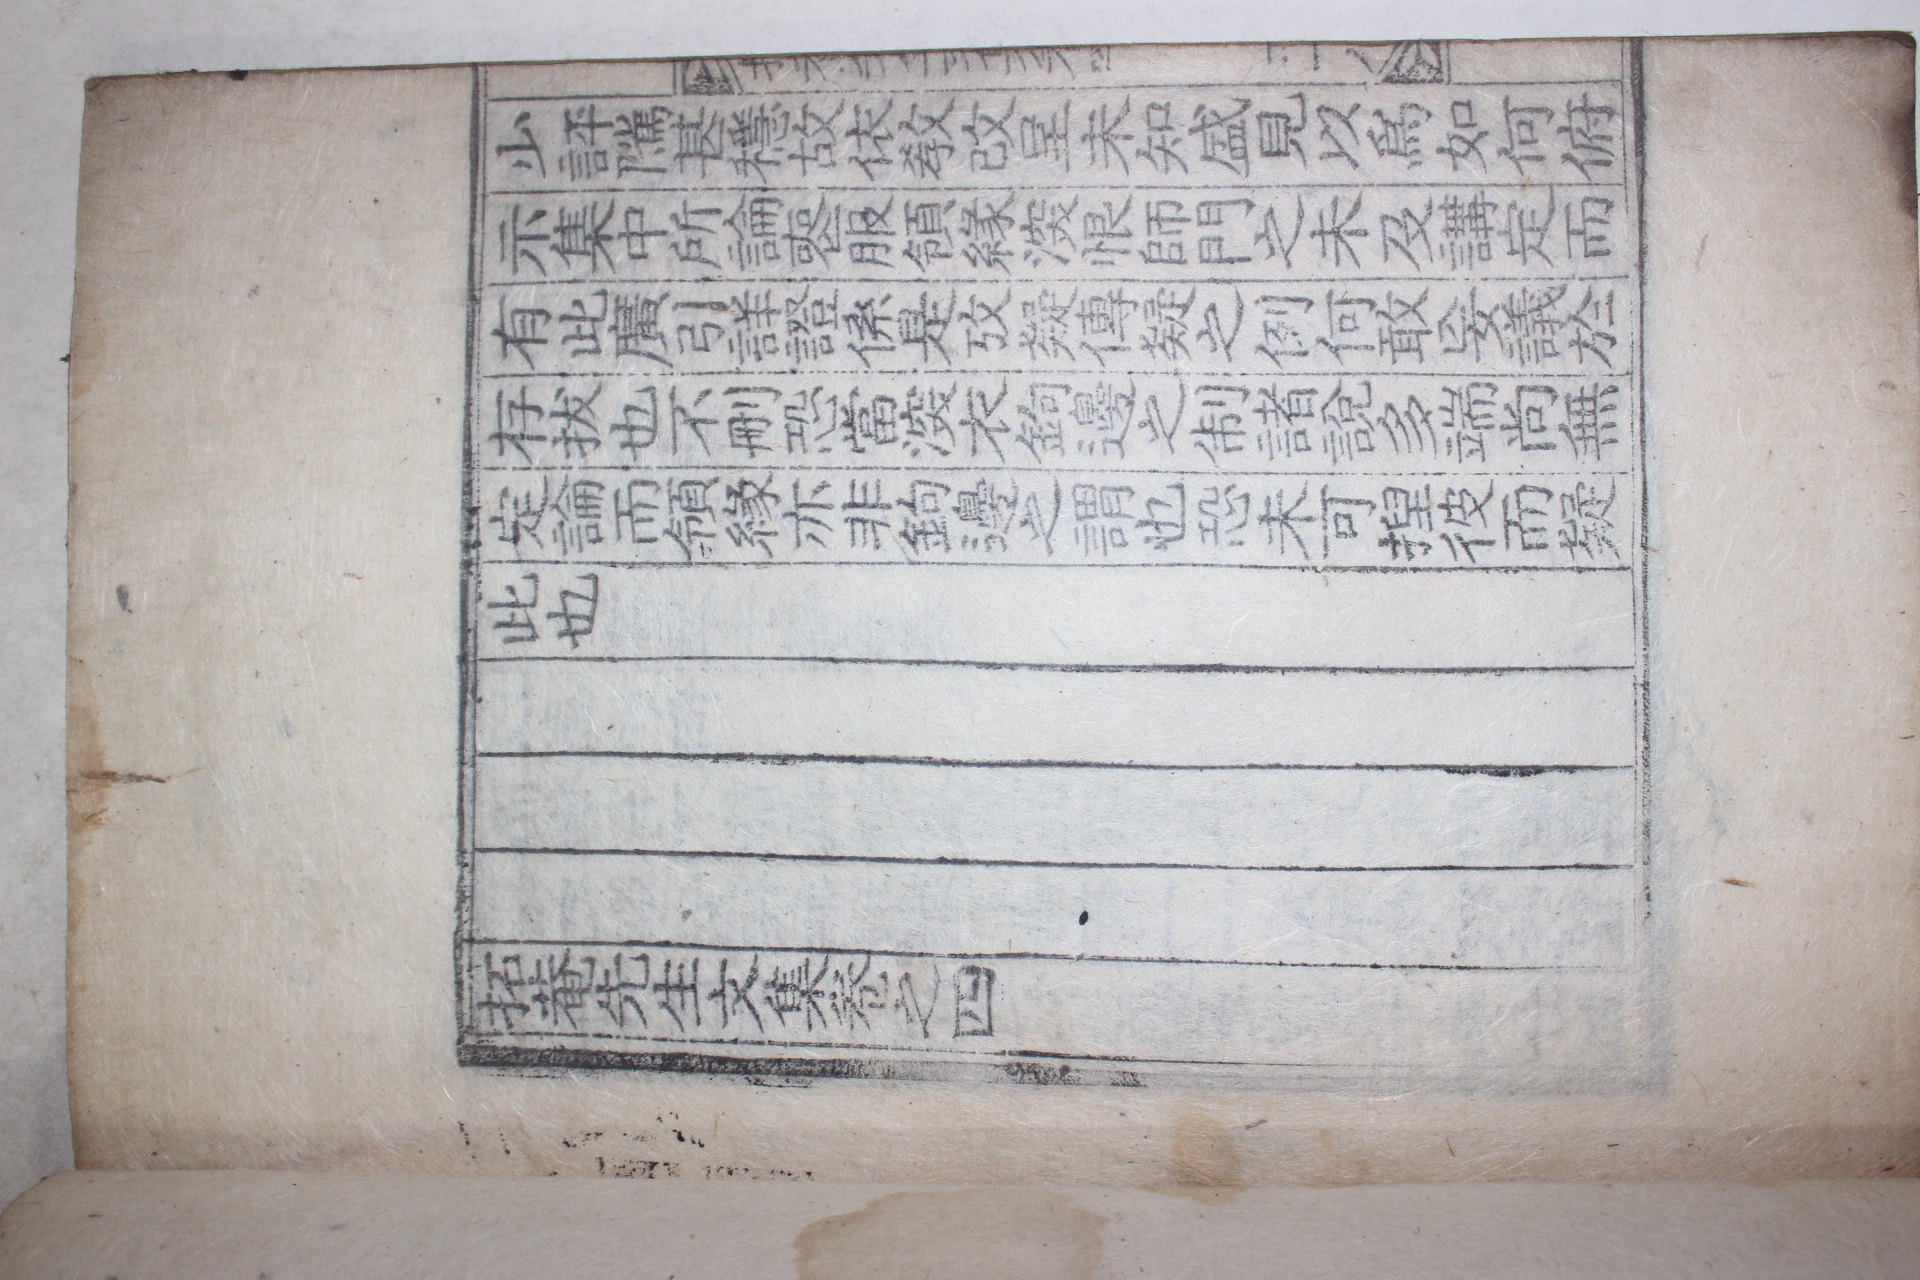 少評隲甚穩故依教改呈未知盛見以爲如何俯
示集中所論喪服領緣深恨師門之未及講定而
有此廣引詳證係是攷疑傳疑之例何敢妄議於
存拔也不刪恐當深衣鉤邊之制諸說多端尚無
定論而領緣亦非鉤邊之謂也恐未可捏彼而疑
此也
拓菴先生文集卷之四